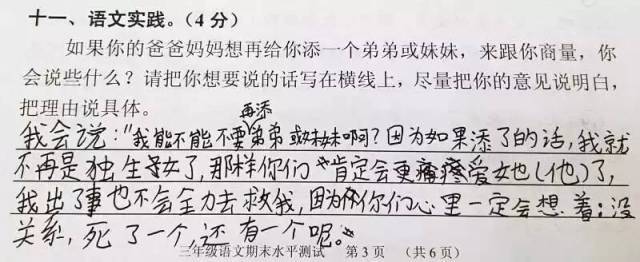 十一、语文实践。(4分)
如果你的爸爸妈妈想再给你添一个弟弟或妹妹,来跟你商量,你
会说些什么?请把你想要说的话写在横线上,尽量把你的意见说明白,
把理由说具体。
再添
我会说:"我能不能不要弟弟或妹妹啊?因为如果添了的话,我就
不再是独生子女了,那样你们肯定会更疼爱她(他)了,
我出了事也不会全力去救我,因为你们心里一定会想着:没
关系,死了一个,还有一个呢。"
三年级语文期末水平测试 第3页 (共6页)